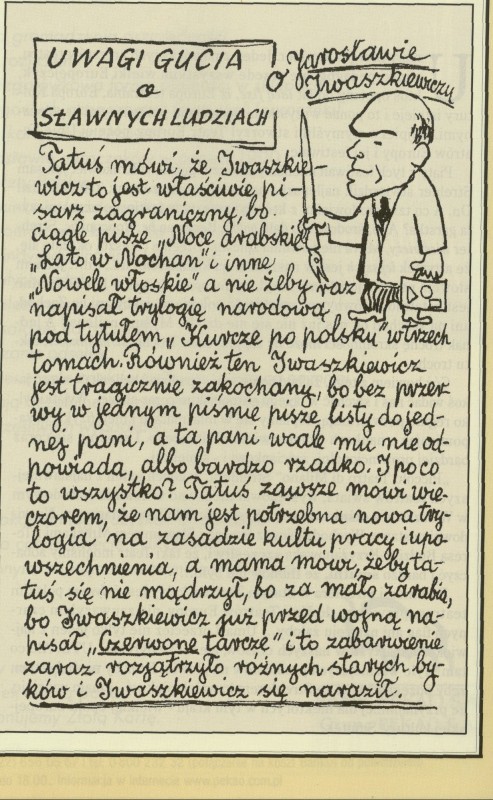 UWAGI GUCIA
o
SŁAWNYCH LUDZIACH
o Jarosławie
Iwaszkiewiczu
Tatuś mówi, że Iwaszkie-
wicz to jest właściwie pi-
sarz zagraniczny, bo
ciągle pisze „Noce arabskie"
„Lato w Nochan" i inne
„Nowele włoskie" a nie żeby raz
napisał trylogię narodową
pod tytułem „Kurcze po polsku" w trzech
tomach. Również ten Iwaszkiewicz
jest tragicznie zakochany, bo bez przer-
wy w jednym piśmie pisze listy do jed-
nej pani, a ta pani wcale mu nie od-
powiada, albo bardzo rzadko. I po co
to wszystko? Tatuś zawsze mówi wie-
czorem, że nam jest potrzebna nowa try-
logia na zasadzie kultu pracy i upo-
wszechnienia, a mama mówi, żeby ta-
tuś się nie mądrzył, bo za mało zarabia,
bo Iwaszkiewicz już przed wojną na-
pisał „Czerwone tarcze" i to zabarwienie
zaraz rozjątrzyło różnych starych by-
ków i Iwaszkiewicz się naraził.